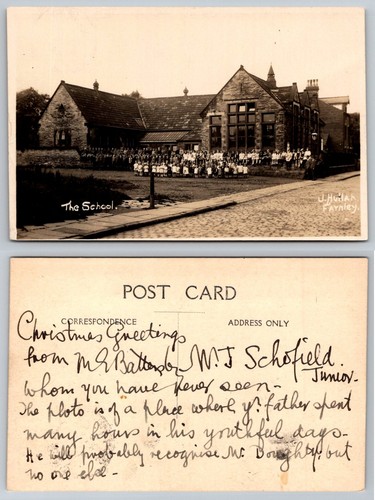 The School.
J. Hullah
Farnley.
POST CARD
CORRESPONDENCE
ADDRESS ONLY
Christmas Greetings
from M E Battersby W. J Schofield.
Junior.
whom you have never seen-
The photo is of a place where yr. father spent
many hours in his youthful days-
He will probably recognise Mr Doughty but
no one else-